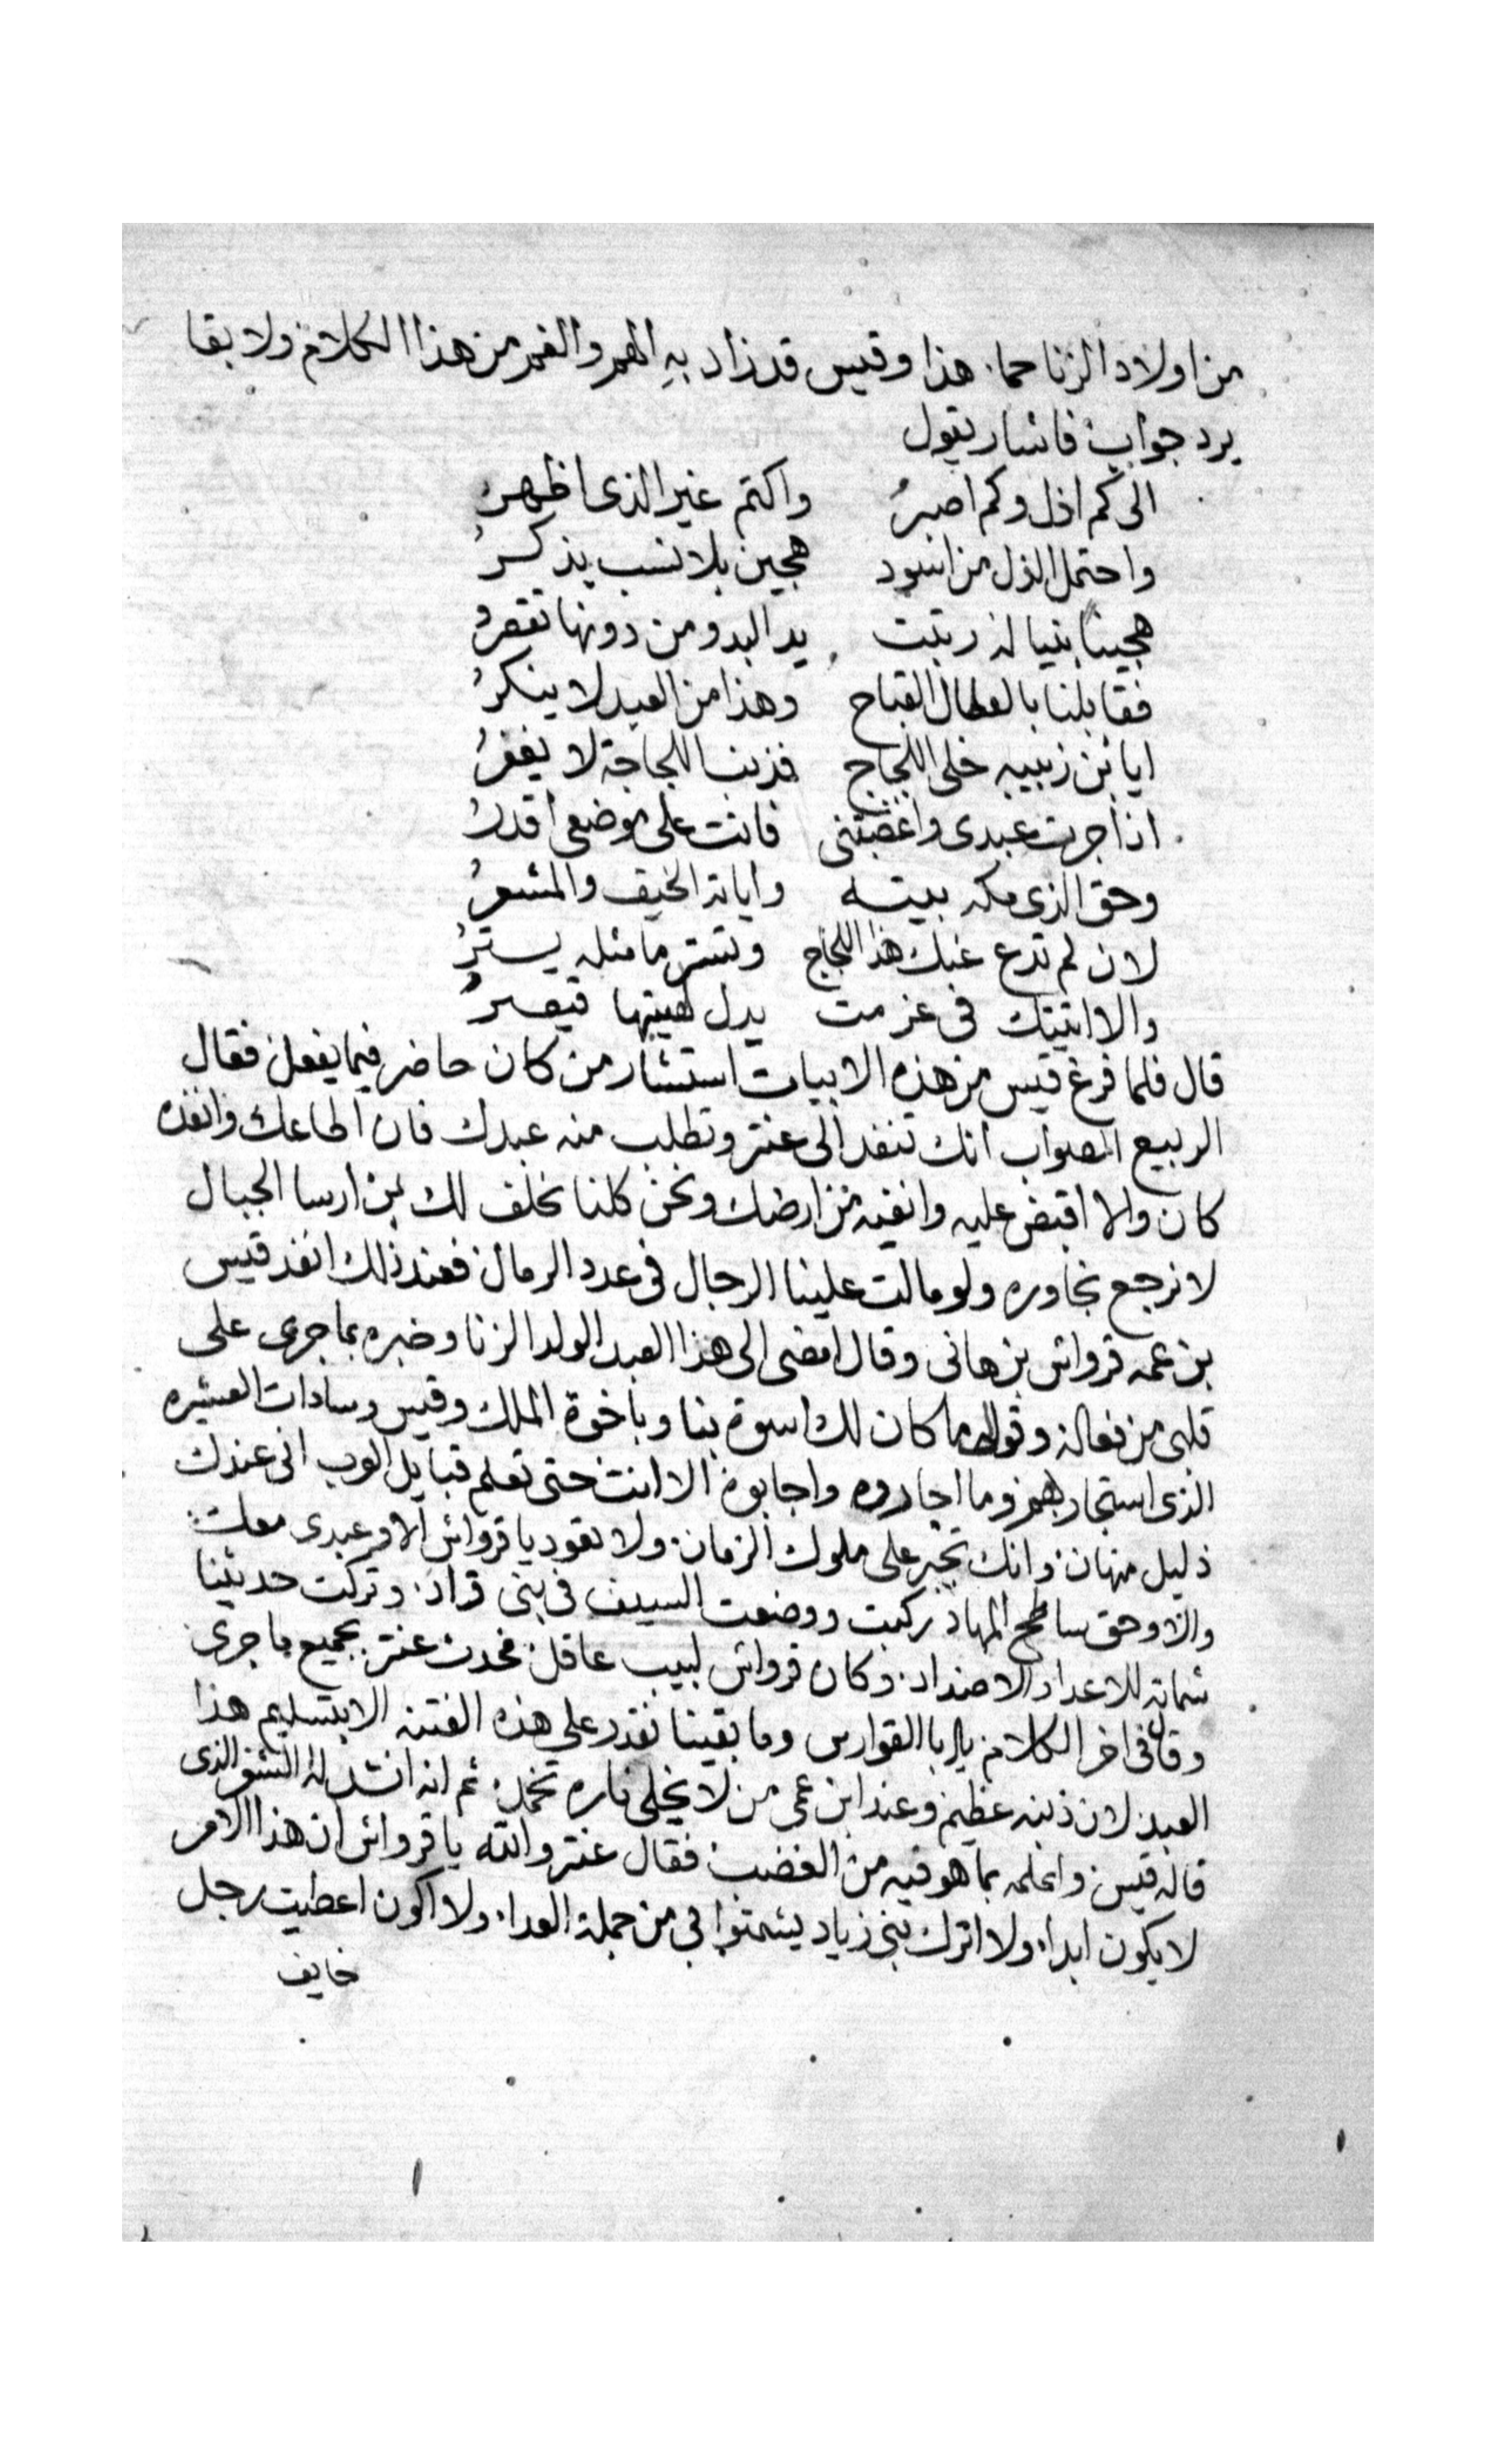 من اولاد الزنا حما. هذا وقيس قد زاد به الهم والغم من هذا الكلام ولا بقا
يرد جواب فانشا ريقول
الى كم اذل وكم اصبرُ واكتم غير الذى اظهرُ
واحتمل الذل من اسود هجين بلا نسب يذكرُ
هجينا بنينا له رتبت يد البدو من دونها تقصرُ
فقابلنا بالفعال القباح وهذا من العبد لا ينكرُ
ايا بن زبيبه خلى اللجاج فذنب اللجاجة لا يغفرُ
اذا جرت عبدى واغضبتنى فانت على موضعى اقدرُ
وحق الذى مكه بيته وايانه الخيف والمشعرُ
لان لم تدع عنك هذا اللجاج وتستر ما مثله يسترُ
والا اتيتك فى عزمت يدل لهيبتها قيصرُ
قال فلما فرغ قيس من هذه الابيات استشار من كان حاضر فيما يفعل فقال
الربيع الصواب انك تنفد الى عنتر وتطلب منه عبدك فان اطاعك وانفده
كان والا اقبض عليه وانفيه من ارضك ونحن كلنا نحلف لك بمن ارسا الجبال
لا نرجع نجاوره ولو مالت علينا الرجال فى عدد الرمال فعند ذلك انفد قيس
بن عمه قرواش بن هانى وقال امضى الى هذا العبد الولد الزنا وخبره بما جرى على
قلبى من فعاله وقول له ما كان لك اسوة بنا وباخوة الملك وقيس وسادات العشيره
الذى استجار بهم وما اجاروه واجابوه الا انت حتى تعلم قبايل العرب انى عندك
ذليل مهان. وانك تجير على ملوك الزمان. ولا تعود يا قرواش الا وعبدى معك
والا وحق ساطح المهاد ركبت ووضعت السيف فى بنى قراد. وتركت حديثنا
شماته للاعدا والاضداد. وكان قرواش لبيب عاقل فحدث عنتر بجميع ما جرى
وقال فى اخر الكلام يا ابا الفوارس وما بقينا نقدر على هذه الفتنه الا بتسليم هذا
العبد لان ذنبه عظيم وعند ابن عمى من لا يخلى ناره تخمد. ثم انه انشد له الشعر الذى
قاله قيس واعلمه بما هو فيه من الغضب فقال عنتر والله يا قرواش ان هذا الامر
لا يكون ابدا. ولا اترك بنى زياد يشمتوا فى من جملة العدا. ولا اكون اعطيت رجل
خايف